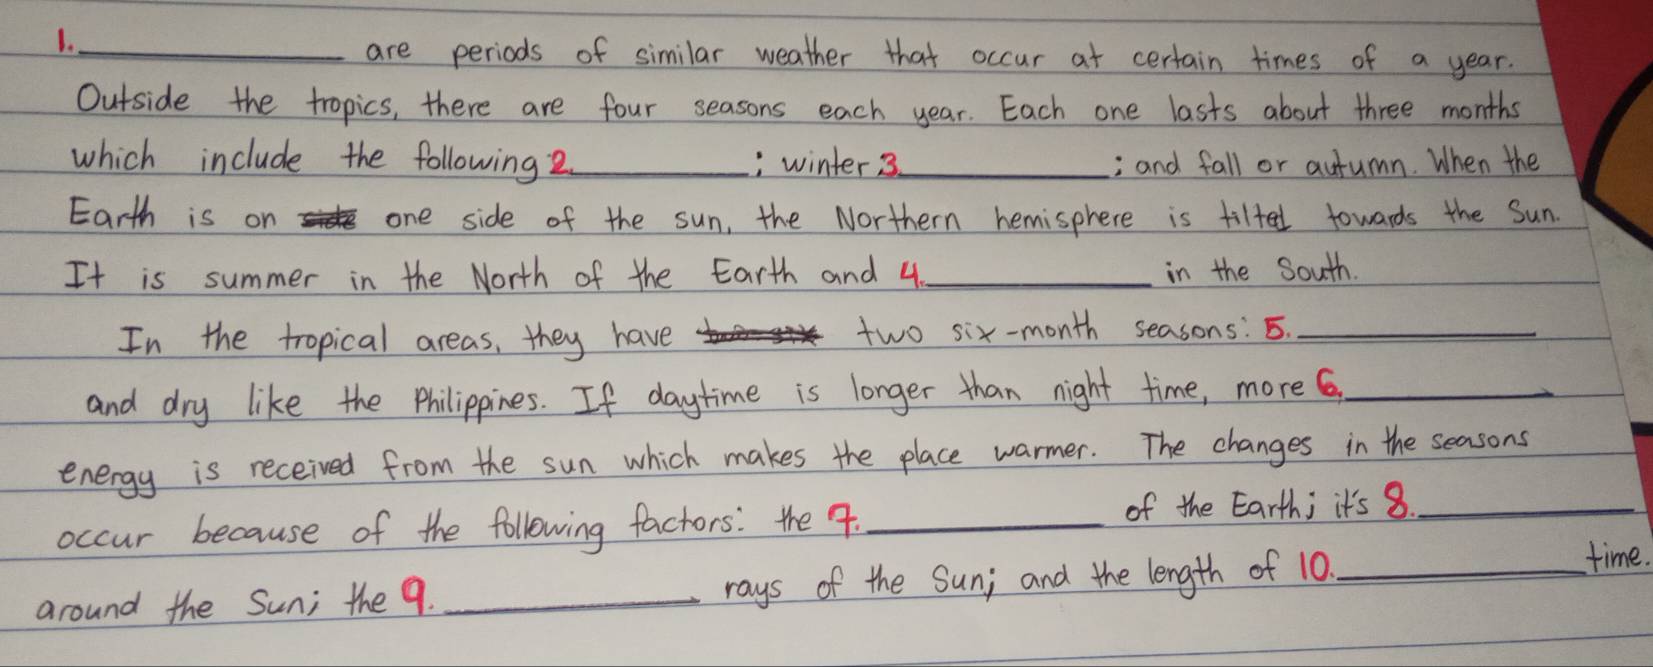 1. ____________ are periods of similar weather that occur at certain times of a year.
Outside the tropics, there are four seasons each year. Each one lasts about three months
which include the following 2. ________; winter 3. __________; and fall or autumn. When the
Earth is on one side of the sun, the Northern hemisphere is tilted towards the Sun.
It is summer in the North of the Earth and 4. __________ in the South.
In the tropical areas, they have two six-month seasons: 5. __________
and dry like the Philippines. If daytime is longer than night time, more 6. __________
energy is received from the sun which makes the place warmer. The changes in the seasons
occur because of the following factors: the 7. __________ of the Earth; it's 8. __________
around the Sun; the 9. ____________ rays of the Sun; and the length of 10. ____________ time.